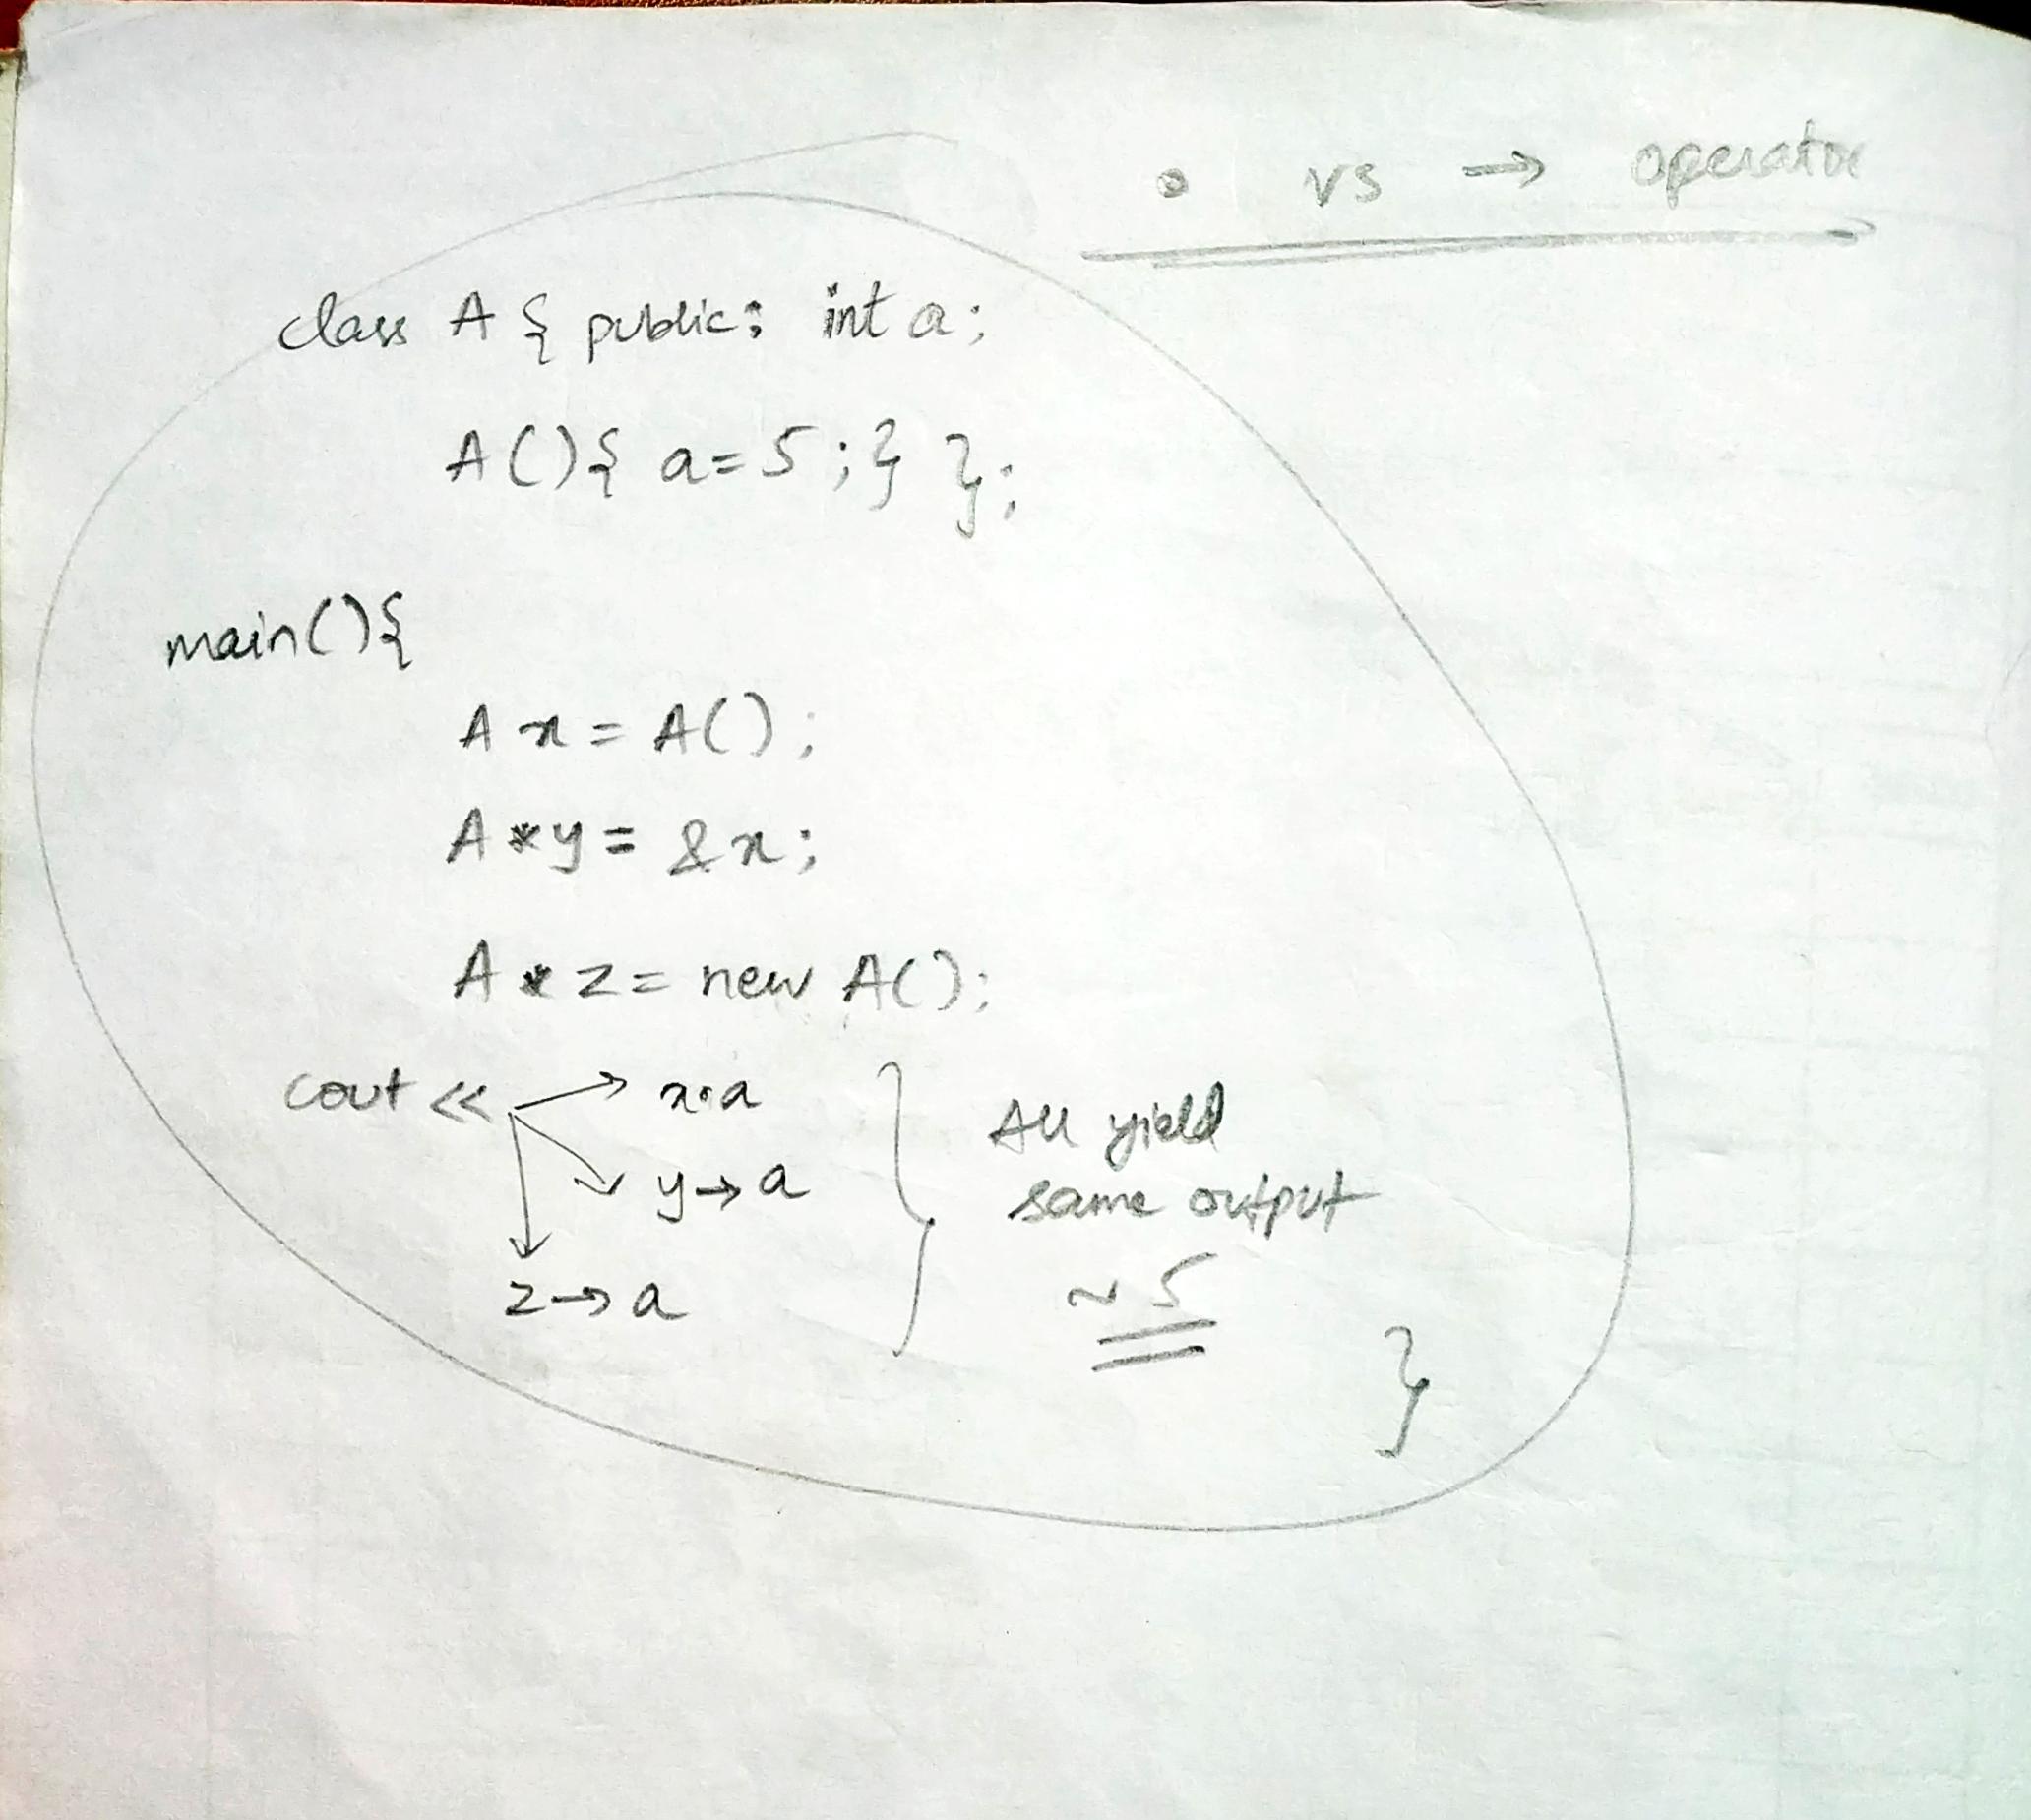 • vs → operator
class A { public: int a;
A(){ a=5;} };
main(){
A x = A();
A *y = &x;
A *z = new A();
cout << x.a
y→a
z→a
All yield
same output
~ 5
}